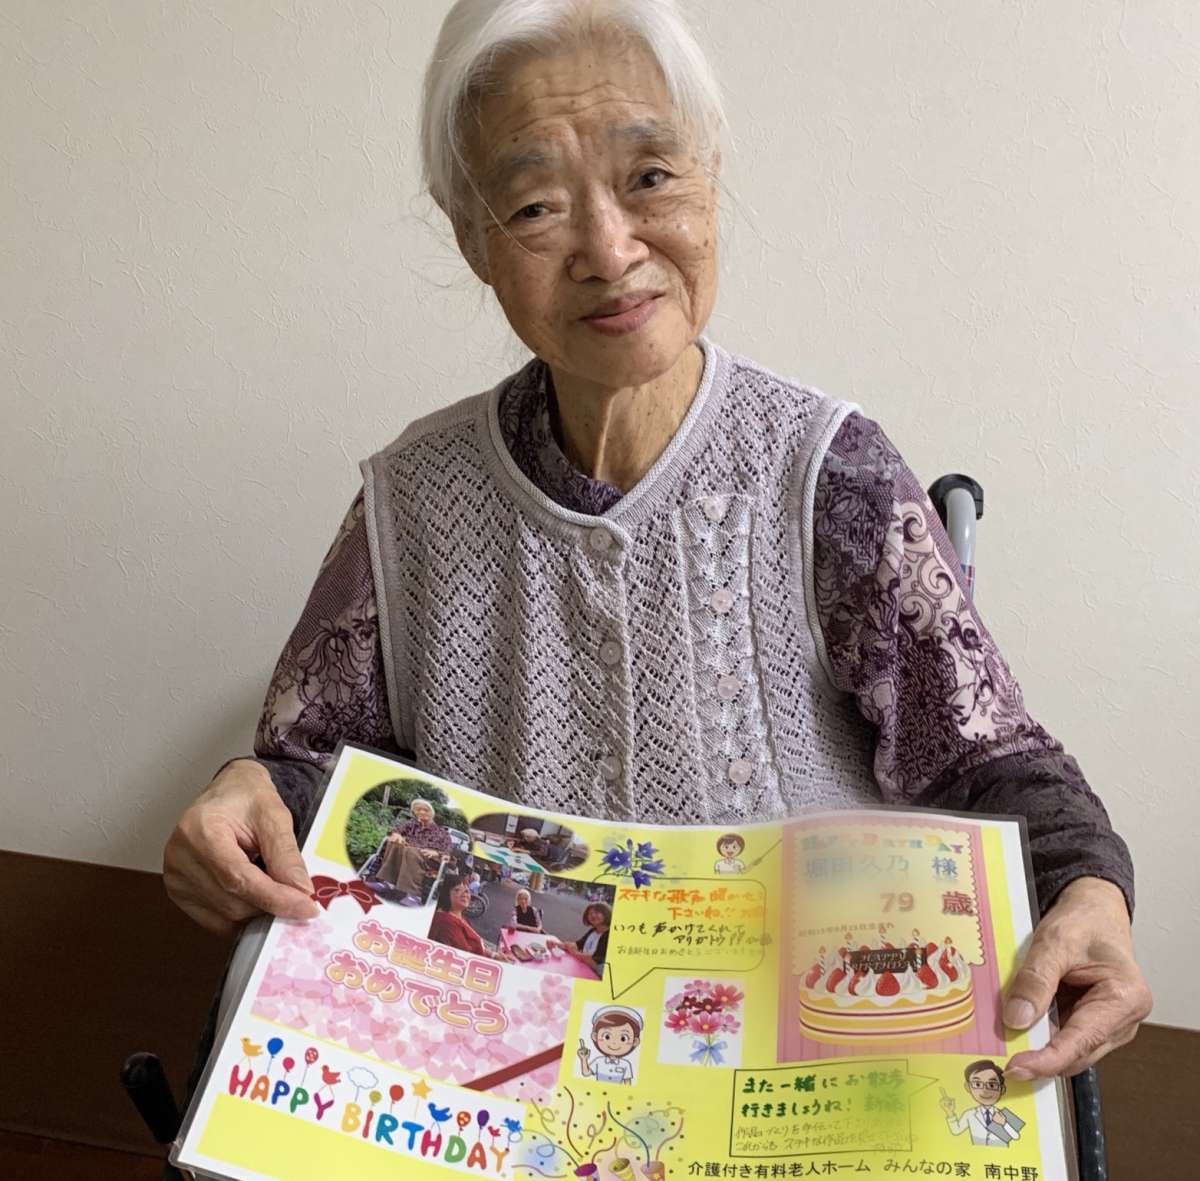 HAPPY BIRTHDAY
堀田久乃 様
79 歳
ステキな歌声 聞かせて
下さいね!!
いつも 声かけてくれて
アリガトウ
お誕生日おめでとうございます
お誕生日
おめでとう
HAPPY BIRTHDAY
また一緒にお散歩
行きましょうね!
介護付き有料老人ホーム みんなの家 南中野